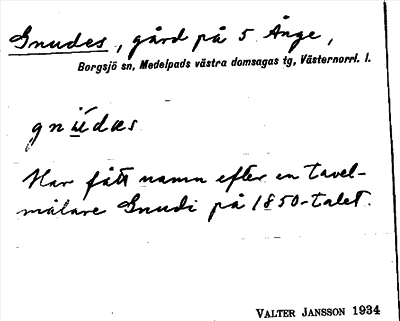 Gnudes, gård på 5 Ånge,
Borgsjö sn, Medelpads västra domsagas tg, Västernorrl. l.
gnúdæs
Har fått namn efter en tavel-
målare Gnudi på 1850-talet.
VALTER JANSSON 1934